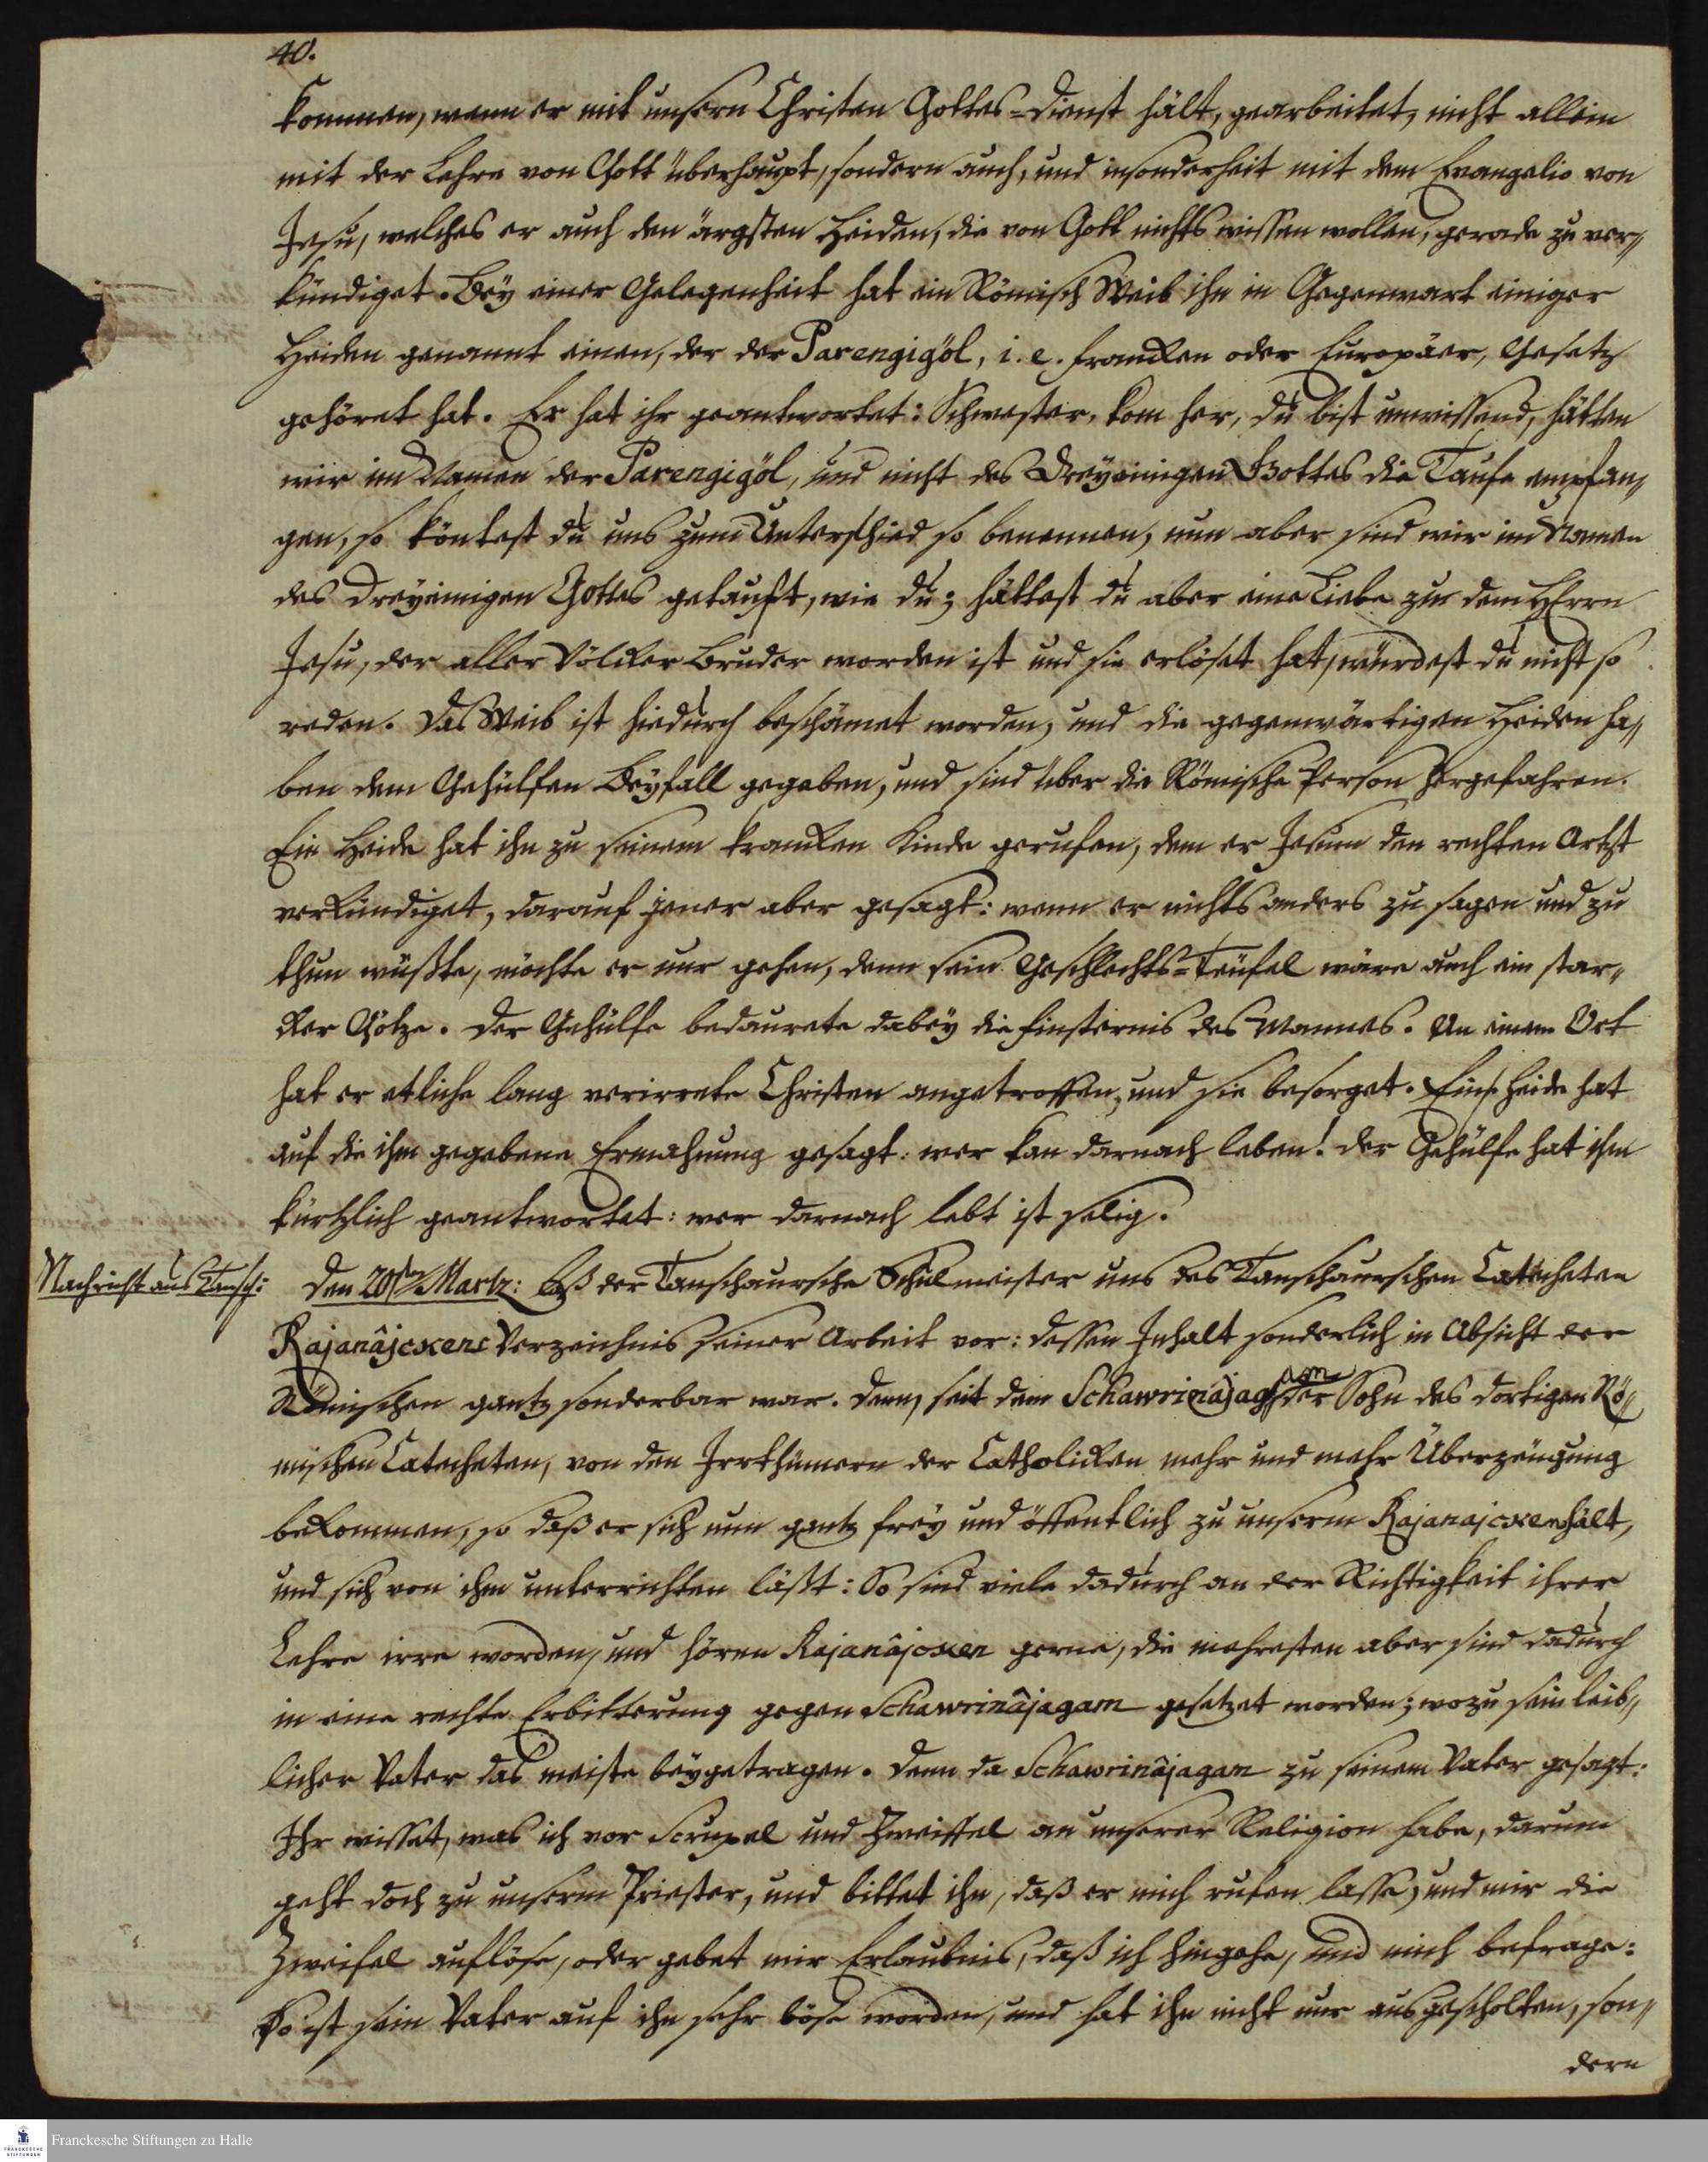 40.
kommen, wenn er mit unsern Christen Gottes-Dienst hält, gearbeitet, nicht allein
mit der Lehre von Gott überhaupt, sondern auch, und insonderheit mit dem Evangelio von
Jesu, welches er auch den ärgsten Heiden, die von Gott nichts wissen wollen, gerade zu ver„
kündiget. Bey einer Gelegenheit hat ein Römisch Weib ihn in Gegenwart einiger
Heiden genannt einen, der der Parengigöl, i. e. Francken oder Europäer, Gesetz
gehöret hat. Er hat ihr geantwortet: Schwester, kom her, du bist unwissend, hätten
wir im Namen der Parengigöl, und nicht des Dreyeinigen Gottes die Taufe empfan„
gen, so köntest du uns zum Unterschied so benennen, nun aber sind wir im Namen
des Dreyeinigen Gottes getauft, wie du; hättest du aber eine Liebe zu dem HErrn
Jesu, der aller Völcker Bruder worden ist und sie erlöset hat, würdest du nicht so
reden. Das Weib ist hiedurch beschämet worden, und die gegenwärtigen Heiden ha„
ben dem Gehülfen Beyfall gegeben, und sind über die Römische Person hergefahren.
Ein Heide hat ihn zu seinem krancken Kinde gerufen, dem er Jesum den rechten Artzt
verkündiget, darauf jener aber gesagt: wenn er nichts anders zu sagen und zu
thun wüßte, möchte er nur gehen, denn sein Geschlechts-Teufel wäre auch ein star„
cker Götze. Der Gehülfe bedaurete dabey die Finsternis des Mannes. An einem Ort
hat er etliche lang verirrete Christen angetroffen, und sie besorget. Ein Heide hat
auf die ihm gegebene Ermahnung gesagt: wer kan darnach leben! Der Gehülfe hat ihm
kürtzlich geantwortet: wer darnach lebt ist selig.
Nachricht aus Tansch:
Den 20ten Martz: laß der Tanschaursche Schulmeister uns des Tanschaurschen Catecheten
Rajanâjckens Verzeichnis seiner Arbeit vor: dessen Inhalt sonderlich in Absicht der
Römischen gantz sonderbar war. Denn, seit dem Schawrinâjagam der Sohn des dortigen Rö„
mischen Catecheten, von den Irrthümern der Catholicken mehr und mehr Überzeugung
bekommen, so daß er sich nun gantz frey und öffentlich zu unserm Rajanajcken hält,
und sich von ihm unterrichten läßt: So sind viele dadurch an der Richtigkeit ihrer
Lehre irre worden, und hören Rajanâjcken gerne, die mehresten aber sind dadurch
in eine rechte Erbitterung gegen Schawrinâjagam gesetzet worden; wozu sein leib„
licher Vater das meiste beygetragen. Denn da Schawrinâjagam zu seinem Vater gesagt:
Ihr wisset, was ich vor Scrupel und Zweiffel an unserer Religion habe, darum
geht doch zu unserm Priester, und bittet ihn, daß er mich rufen lasse, und mir die
Zweifel auflöse, oder gebet mir Erlaubnis, daß ich hingehe, und mich befrage:
So ist sein Vater auf ihn sehr böse worden, und hat ihn nicht nur ausgescholten, son„
dern
FRANCKESCHE STIFTUNGEN
Franckesche Stiftungen zu Halle